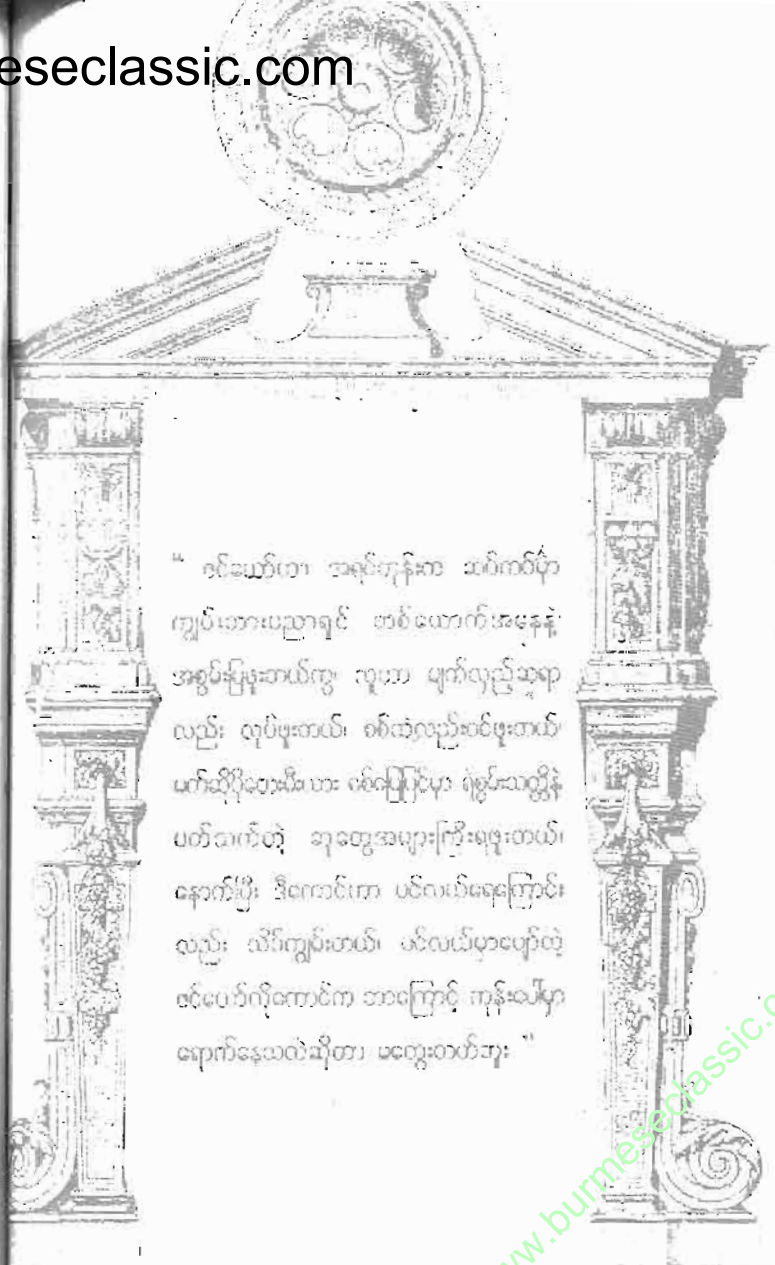 eseclassic.com
“ ဇင်ယော်ဟာ အရင်တုန်းက ဆပ်ကပ်မှာ
ကျွမ်းဘားပညာရှင် တစ်ယောက်အနေနဲ့
အစွမ်းပြဖူးတယ်ကွ၊ သူဟာ မျက်လှည့်ဆရာ
လည်း လုပ်ဖူးတယ်၊ စစ်ထဲလည်းဝင်ဖူးတယ်၊
မက်ဆိုပိုတေးမီးယား စစ်မြေပြင်မှာ ရဲစွမ်းသတ္တိနဲ့
ပတ်သက်တဲ့ ဆုတွေအများကြီးရဖူးတယ်၊
နောက်ပြီး ဒီကောင်ဟာ ပင်လယ်ရေကြောင်း
လည်း သိပ်ကျွမ်းတယ်၊ ပင်လယ်မှာပျော်တဲ့
ဇင်ယော်လိုကောင်က ဘာကြောင့် ကုန်းပေါ်မှာ
ရောက်နေသလဲဆိုတာ မတွေးတတ်ဘူး ”
www.burmeseclassic.c